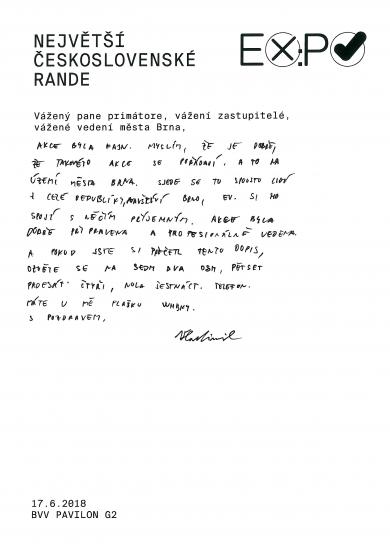 NEJVĚTŠÍ
ČESKOSLOVENSKÉ
RANDE
EXPO
Vážený pane primátore, vážení zastupitelé,
vážené vedení města Brna,
AKCE BYLA FAJN. MYSLÍM, ŽE JE DOBŘE,
ŽE TAKOVÉTO AKCE SE POŘÁDAJÍ. A TO NA
ÚZEMÍ MĚSTA BRNA. SJEDE SE TU SPOUSTU LIDÍ
Z CELÉ REPUBLIKY, NAVŠTÍVÍ BRNO, EV. SI HO
SPOJÍ S NĚČÍM PŘÍJEMNÝM. AKCE BYLA
DOBŘE PŘIPRAVENA A PROFESIONÁLNĚ VEDENA.
A POKUD JSTE SI PŘEČETL TENTO DOPIS,
OZVĚTE SE NA SEDM DVA OSM, PĚTSET
PADESÁT ČTYŘI, NULA ŠESTNÁCT. TELEFON.
MÁTE U MĚ FLAŠKU
S POZDRAVEM,
Vlastimil
17.6.2018
BVV PAVILON G2